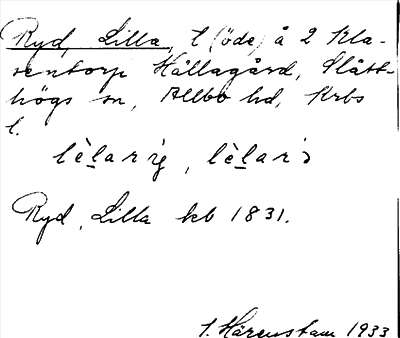 Ryd, Lilla, t (öde) å 2 Kla-
sentorp Hällagård, Slätt-
högs sn, Allbo hd, Krbs
l.
Ryd, Lilla kb 1831.
S. Härenstam 1933